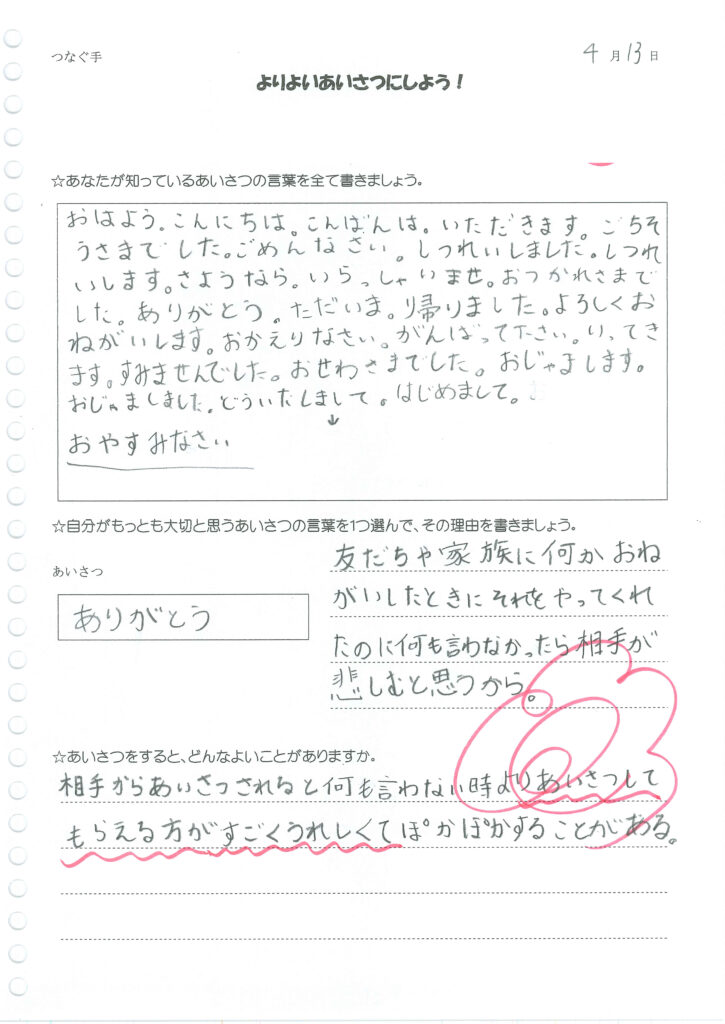 つなぐ手
4月13日
よりよいあいさつにしよう！
☆あなたが知っているあいさつの言葉を全て書きましょう。
おはよう。こんにちは。こんばんは。いただきます。ごちそ
うさまでした。ごめんなさい。しつれいしました。しつれ
いします。さようなら。いらっしゃいませ。おつかれさまで
した。ありがとう。ただいま。帰りました。よろしくお
ねがいします。おかえりなさい。がんばって下さい。いってき
ます。すみませんでした。おせわさまでした。おじゃまします。
おじゃましました。どういたしまして。はじめまして。
↓
おやすみなさい
☆自分がもっとも大切と思うあいさつの言葉を1つ選んで、その理由を書きましょう。
あいさつ
ありがとう
友だちや家族に何かおね
がいしたときにそれをやってくれ
たのに何も言わなかったら相手が
悲しむと思うから。
☆あいさつをすると、どんなよいことがありますか。
相手からあいさつされると何も言わない時よりあいさつして
もらえる方がすごくうれしくてぽかぽかすることがある。